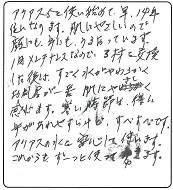 アクアス5を使い始めて、早、14年
位になります。肌にやさしいので
顔にも、体にも、うるおっています。
1月メンテナンスなので、3村で交換
した後は、すごく水がやわらかく
お風呂が一番 肌にやさしく
感じます。寒い時節は、体も
中があたたまり、すべすべです。
アクアスの水で安心して使います。
これからもずーっと使います。